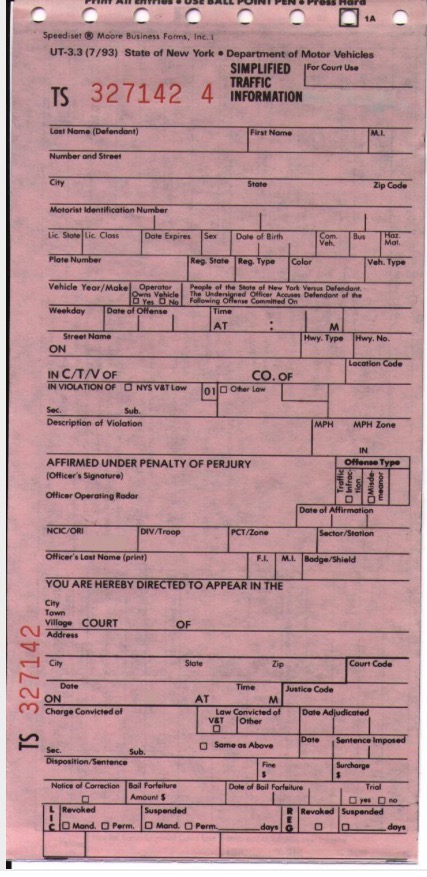 Print All Entries • USE BALL POINT PEN • Press Hard
1A
Speediset ® Moore Business Forms, Inc. I
UT-3.3 (7/93) State of New York • Department of Motor Vehicles
TS 327142 4
SIMPLIFIED
TRAFFIC
INFORMATION
For Court Use
Last Name (Defendant) First Name M.I.
Number and Street
City State Zip Code
Motorist Identification Number
Lic. State Lic. Class Date Expires Sex Date of Birth Com. Veh. Bus Haz. Mat.
Plate Number Reg. State Reg. Type Color Veh. Type
Vehicle Year/Make Operator Owns Vehicle ☐ Yes ☐ No
People of the State of New York Versus Defendant.
The Undersigned Officer Accuses Defendant of the
Following Offense Committed On
Weekday Date of Offense Time
AT : M
Street Name Hwy. Type Hwy. No.
ON
Location Code
IN C/T/V OF CO. OF
IN VIOLATION OF ☐ NYS V&T Law 01 ☐ Other Law
Sec. Sub.
Description of Violation MPH MPH Zone
IN
AFFIRMED UNDER PENALTY OF PERJURY
(Officer's Signature)
Offense Type
Traffic Infrac-tion ☐ Misde-meanor ☐
Officer Operating Radar
Date of Affirmation
NCIC/ORI DIV/Troop PCT/Zone Sector/Station
Officer's Last Name (print) F.I. M.I. Badge/Shield
YOU ARE HEREBY DIRECTED TO APPEAR IN THE
City
Town
Village COURT OF
Address
City State Zip Court Code
Date Time Justice Code
ON AT M
Charge Convicted of Law Convicted of V&T ☐ Other Date Adjudicated
☐ Same as Above Date Sentence Imposed
Sec. Sub.
Disposition/Sentence Fine $ Surcharge $
Notice of Correction ☐ Bail Forfeiture Amount $ Date of Bail Forfeiture Trial ☐ yes ☐ no
LIC Revoked ☐ Mand. ☐ Perm. Suspended ☐ Mand. ☐ Perm. days
REG Revoked ☐ Suspended ☐ days
TS 327142